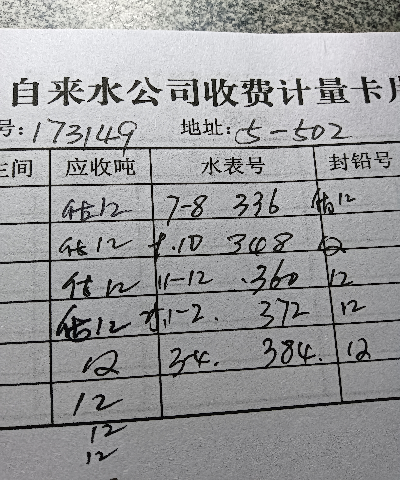 自来水公司收费计量卡片
号:173149 地址:5-502
间 应收吨 水表号 封铅号
估12 7-8 336 估12
估12 9.10 348 12
估12 11-12 360 12
估12 1-2. 372 12
12 3-4. 384. 12
12
12
12